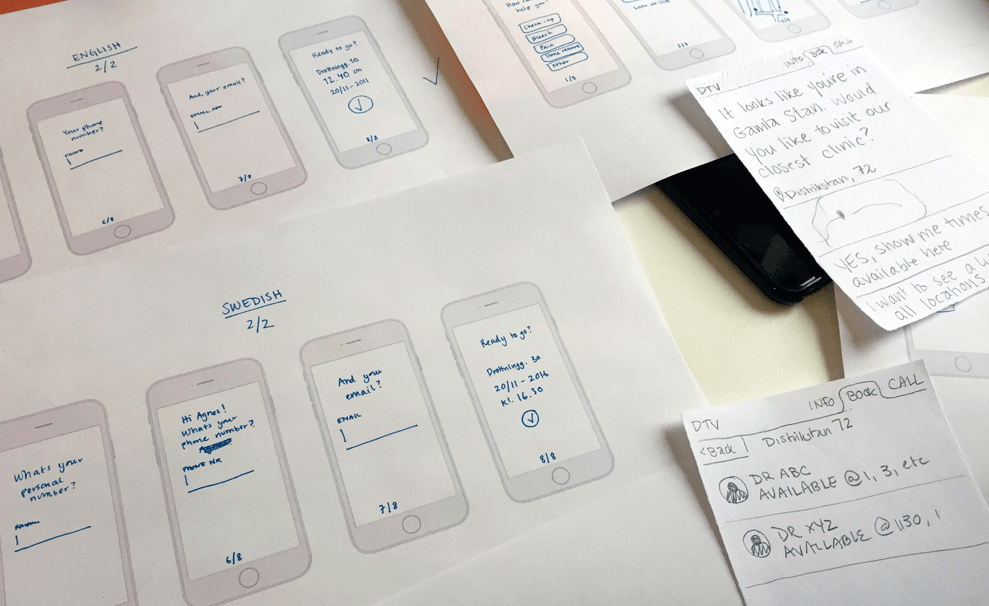 ENGLISH
2/2
Your phone
number?
PHONE
6/8
And, your email?
7/8
Ready to go?
Drottningg. 30
12.40 on
8/8
help you?
Check-up
Bleach
Pain
Other
1/8
2/8
DTV
INFO BOOK CALL
It looks like you're in
Gamla Stan. Would
you like to visit our
closest clinic?
@Distrikstan, 72
YES, show me times
available here
I want to see a
all locations
SWEDISH
2/2
Whats your
personal
number?
Hi Agnes!
Whats your
phone number?
PHONE NR
6/8
And your
email?
EMAIL
7/8
Ready to go?
Drottningg. 30
20/11 - 2016
Kl. 16.30
8/8
DTV
INFO BOOK CALL
<Back
Distrikstan 72
DR ABC
AVAILABLE @ 1, 3, etc
DR XYZ
AVAILABLE @ 1130, 1